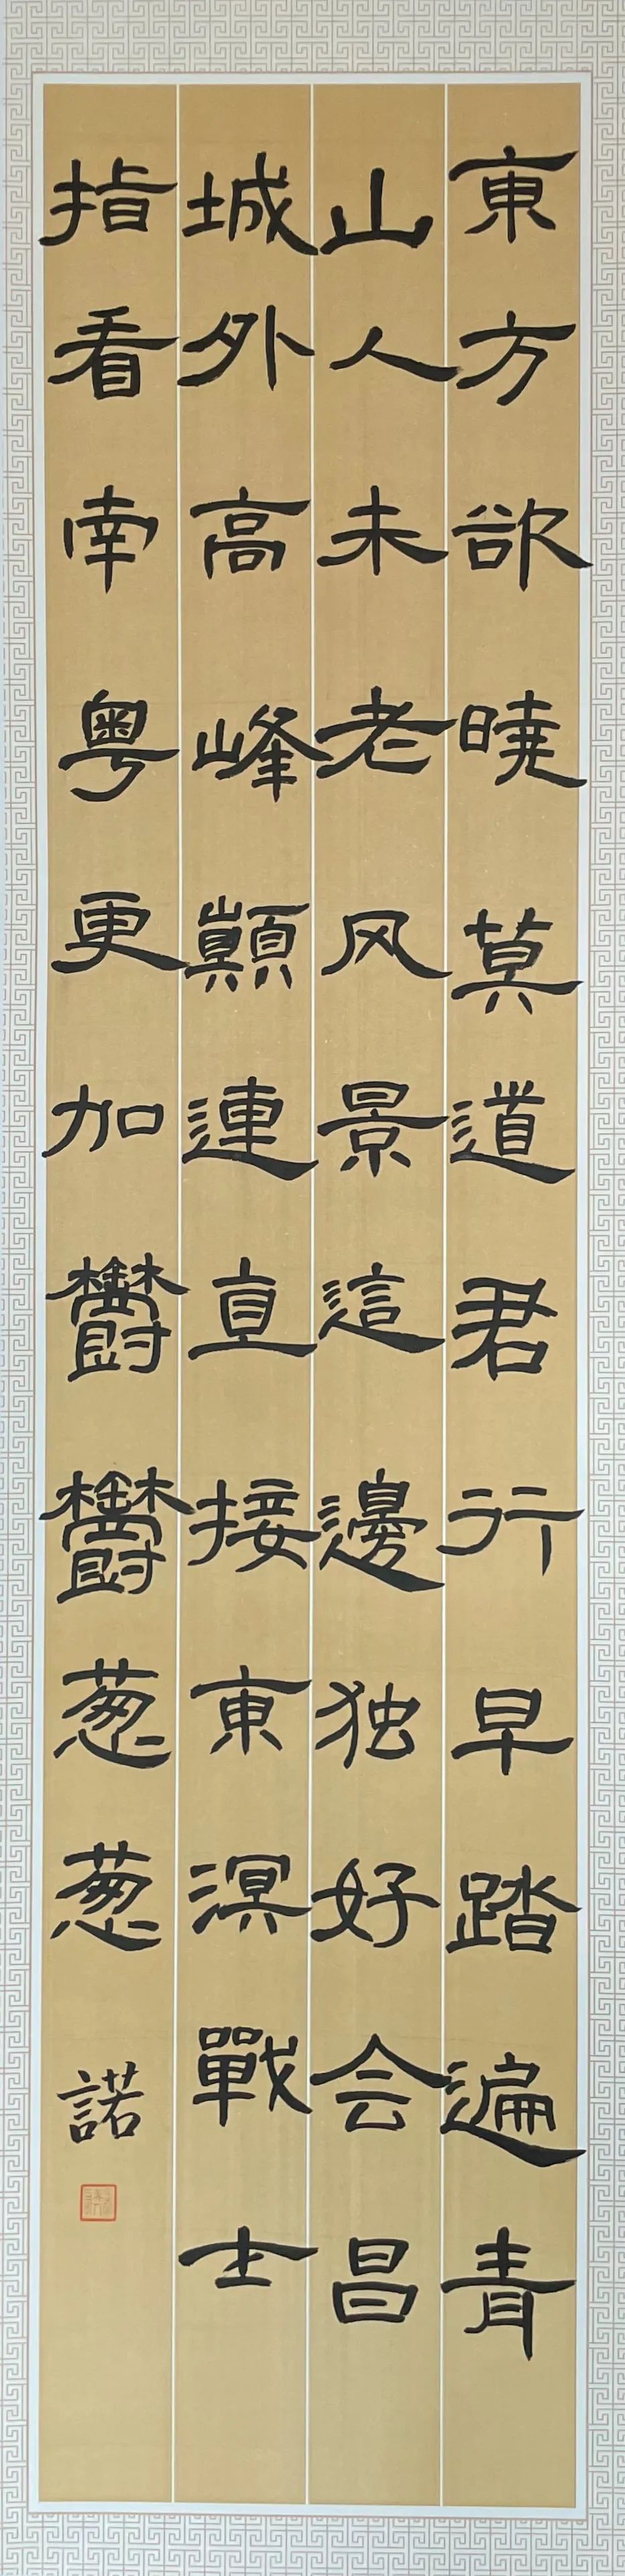 東方欲曉莫道君行早踏遍青
山人未老风景這邊独好会昌
城外高峰顛連直接東溟戰士
指看南粤更加欝欝葱葱諾